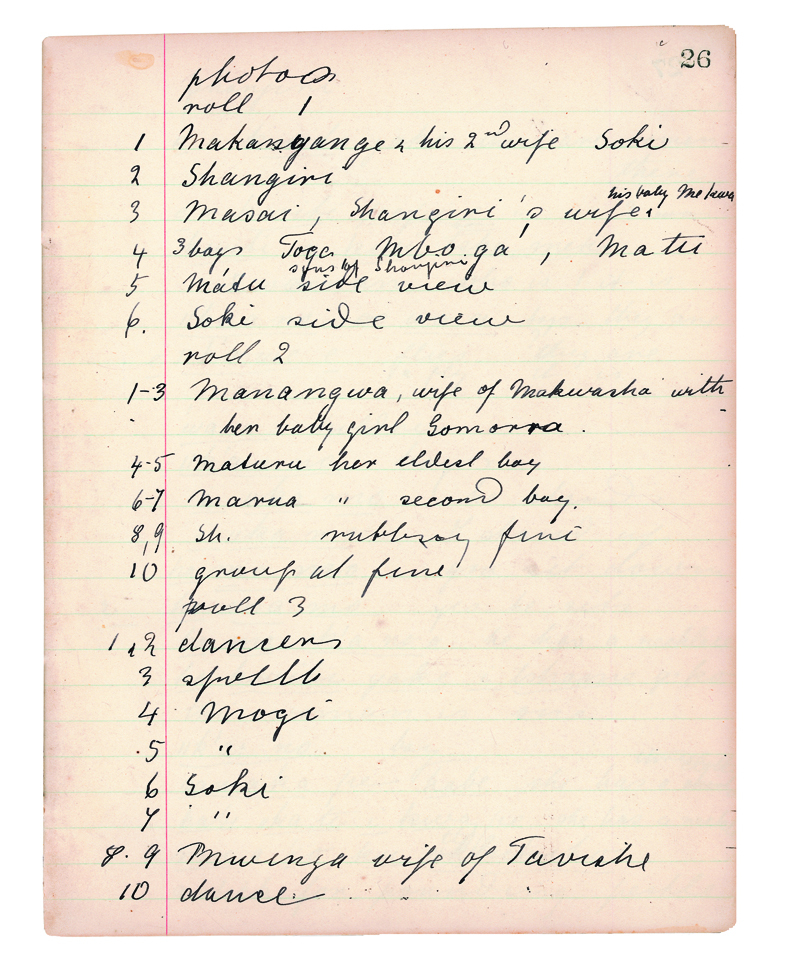 26
photos
roll 1
1 Makanyange & his 2nd wife Soki
2 Shangiri
his baby
3 Masai, Shangiri's wife
4 3 boys Toga Mboga, Matu
sons of Shangiri
5 Matu side view
6. Soki side view
roll 2
1-3 Manangwa, wife of Makwasha with
her baby girl Gomorra.
4-5 Maturu her eldest boy
6-7 Marua " second boy.
8,9 Sh. rubbing fire
10 group at fire
roll 3
1,2 dancers
3
4 Mogi
5 "
6 Soki
7 "
8. 9 Mwenga wife of Tavishe
10 dance